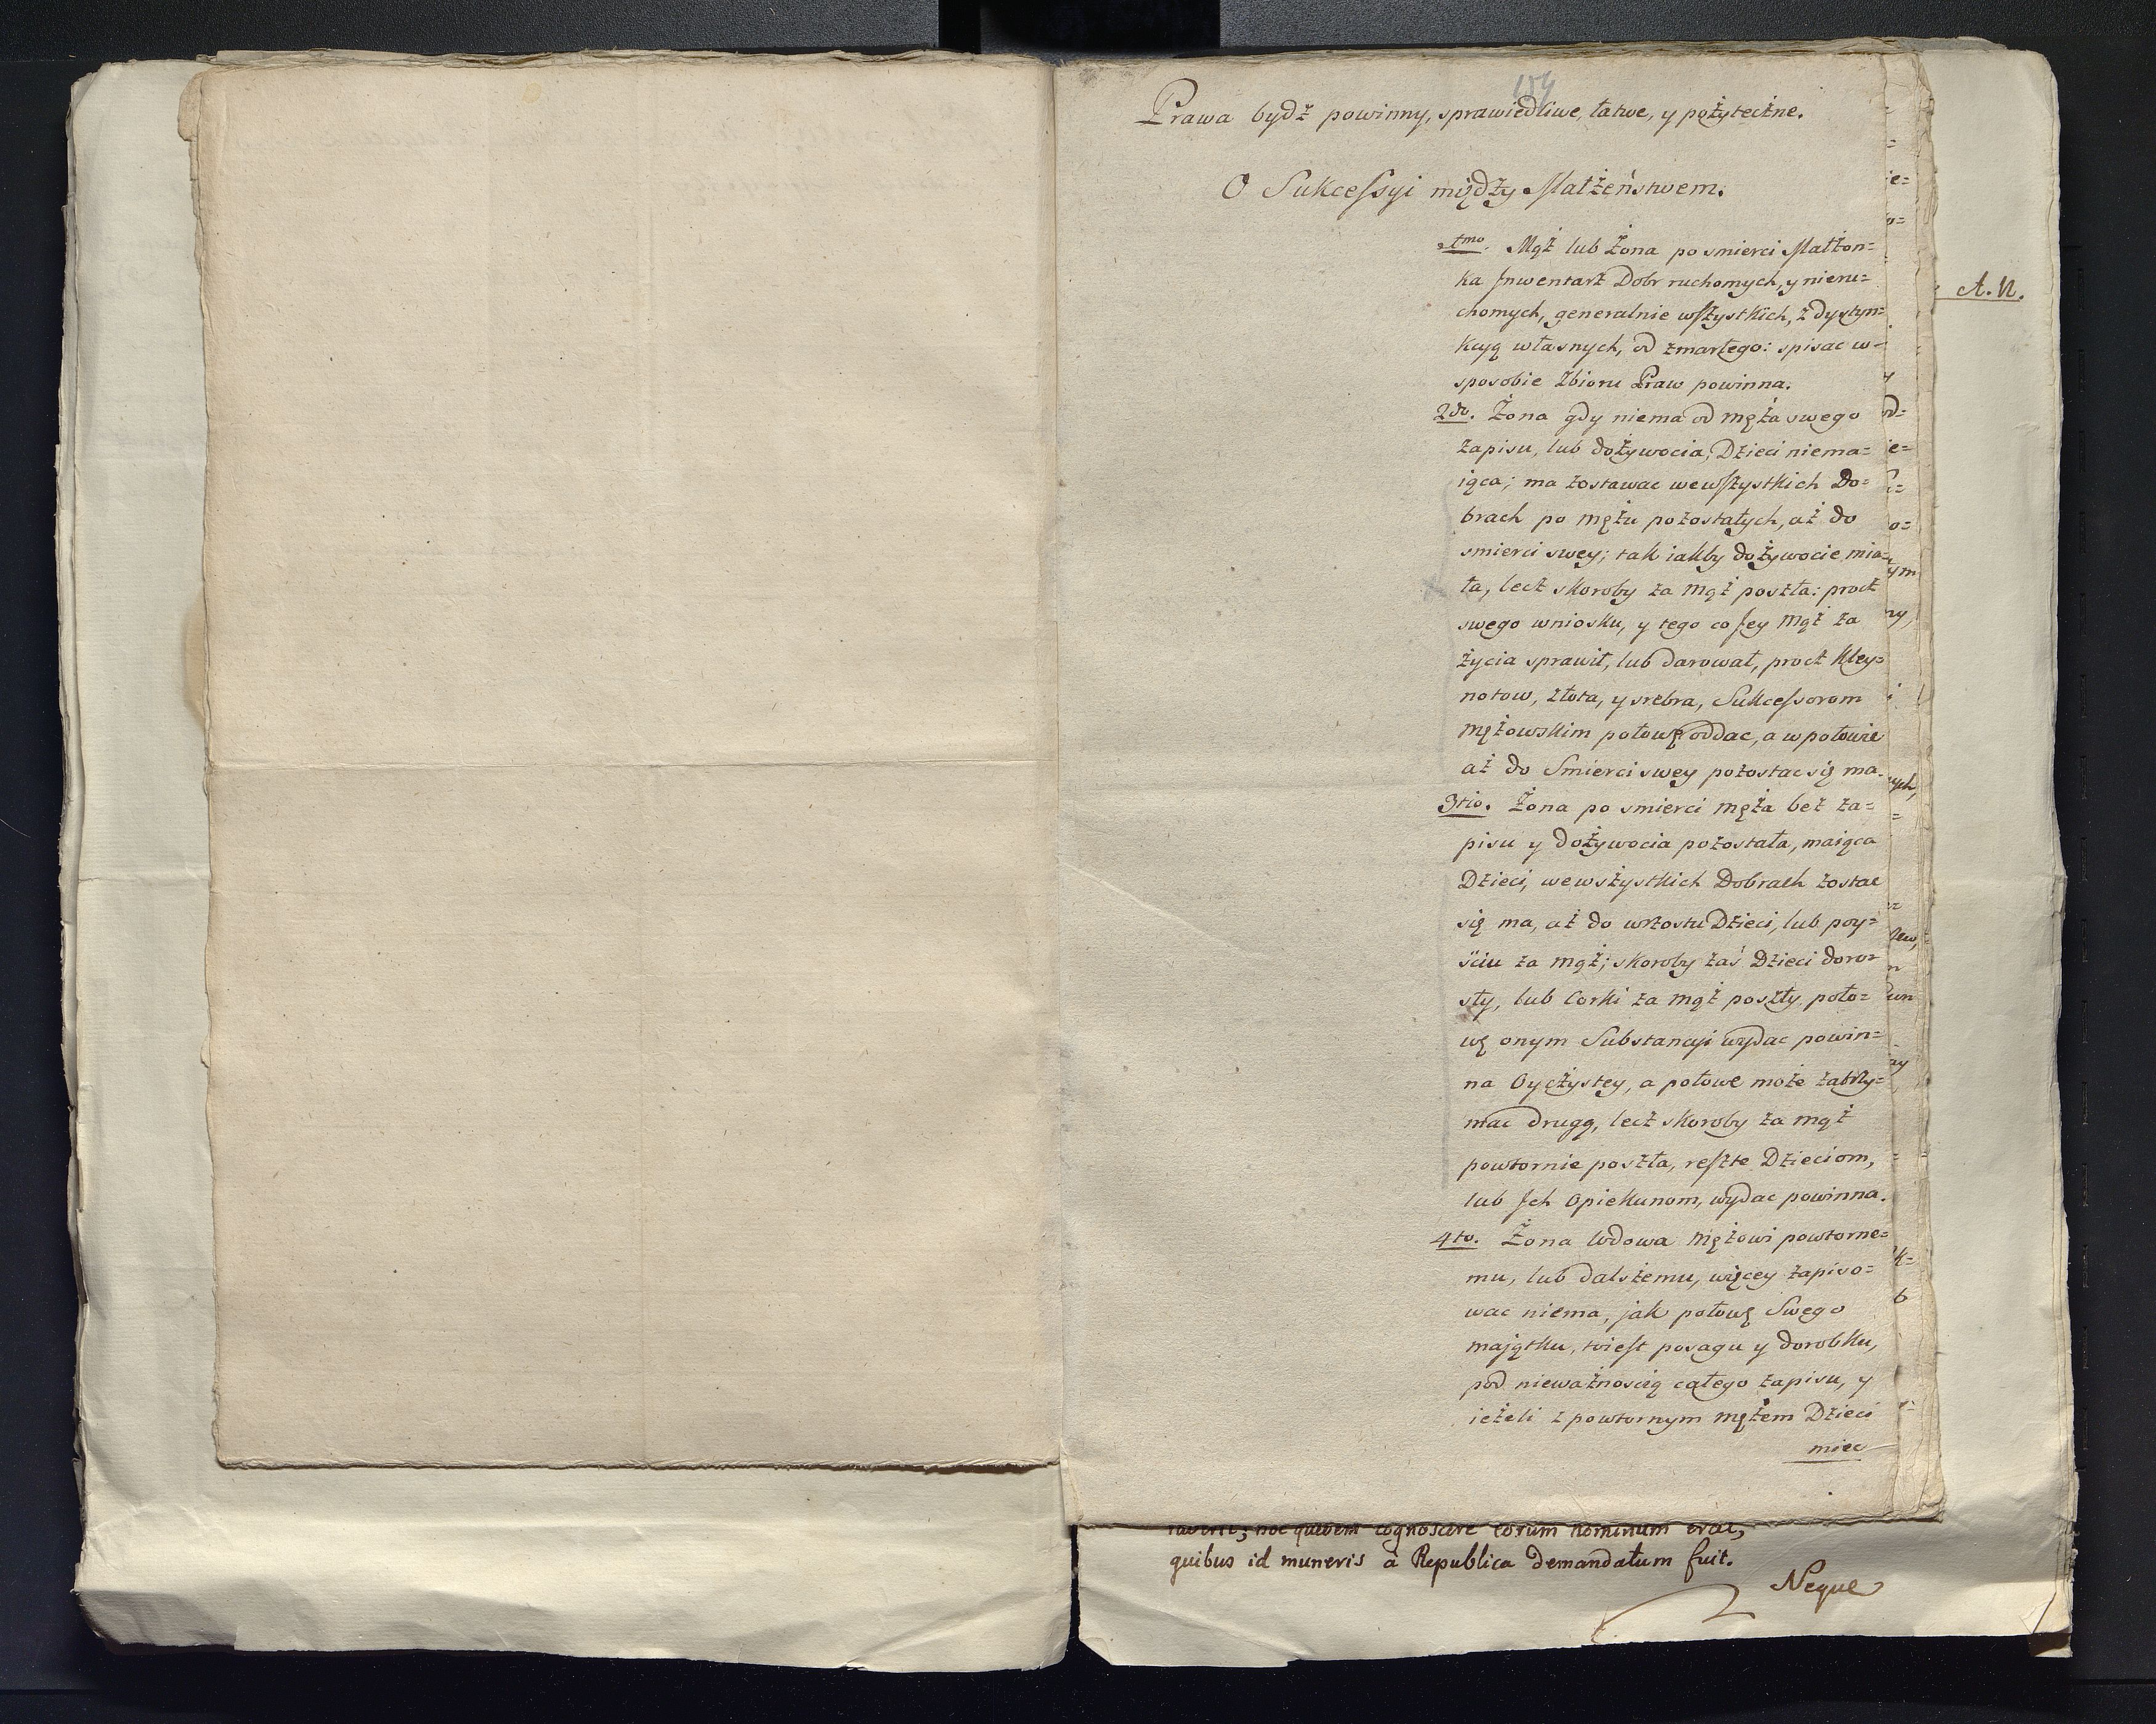 154
Prawa bydź powinny, sprawiedliwe, łatwe, y pożyteczne.
O Sukcessyi między Małżeństwem.
1mo. Mąż lub Żona po smierci Małżon=
ka Jnwentarz Dobr ruchomych, y nieru=
chomych, generalnie wszystkich, z dystyn=
kcyą własnych, od zmarłego: spisac w=
sposobie Zbioru Praw powinna.
2do. Żona gdy niema od męża swego
zapisu, lub dożywocia, Dzieci niema=
iąca; ma zostawac wewszystkich Do=
brach po mężu pozostałych, aż do
smierci swey; tak iakby dożywocie mia=
ła, lecz skoroby za mąż poszła: procz
swego wniosku, y tego co Jey mąż za
życia sprawił, lub darował, procz kley=
notow, złota, y srebra, Sukcessorom
mężowskim połowę oddac, a w połowie
aż do Smierci swey pozostac się ma.
3tio. Żona po smierci męża bez za=
pisu y dożywocia pozostała, maiąca
Dzieci, wewszystkich Dobrach zostac
się ma, aż do wzrostu Dzieci, lub poy=
ściu za mąż; skoroby zaś Dzieci doro=
sły, lub Corki za mąż poszły, poło=
wę onym Substancyi wydac powin=
na Oyczystey, a połowe może zatrzy=
mac drugą, lecz skoroby za mąż
powtornie poszła, reszte Dzieciom,
lub Jch Opiekunom, wydac powinna.
4to. Żona Wdowa Mężowi powtorne=
mu, lub dalszemu, więcey zapiso=
wac niema, jak połowę Swego
majątku, toiest posagu y dorobku,
pod nieważnoscią całego zapisu, y
ieżeli z powtornym mężem Dzieci
miec
A. N.
quidem cognoscere eorum hominum erat,
quibus id muneris à Republica demandatum fuit.
Neque